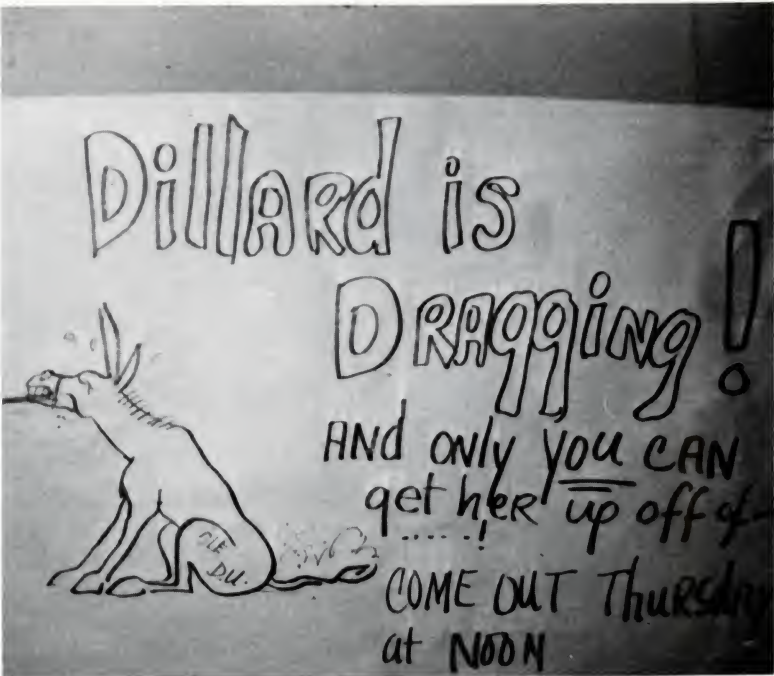 Dillard is
Dragging!
And only you can
get her up off of-
......!
Come out Thursday
at Noon
OLE
D.U.